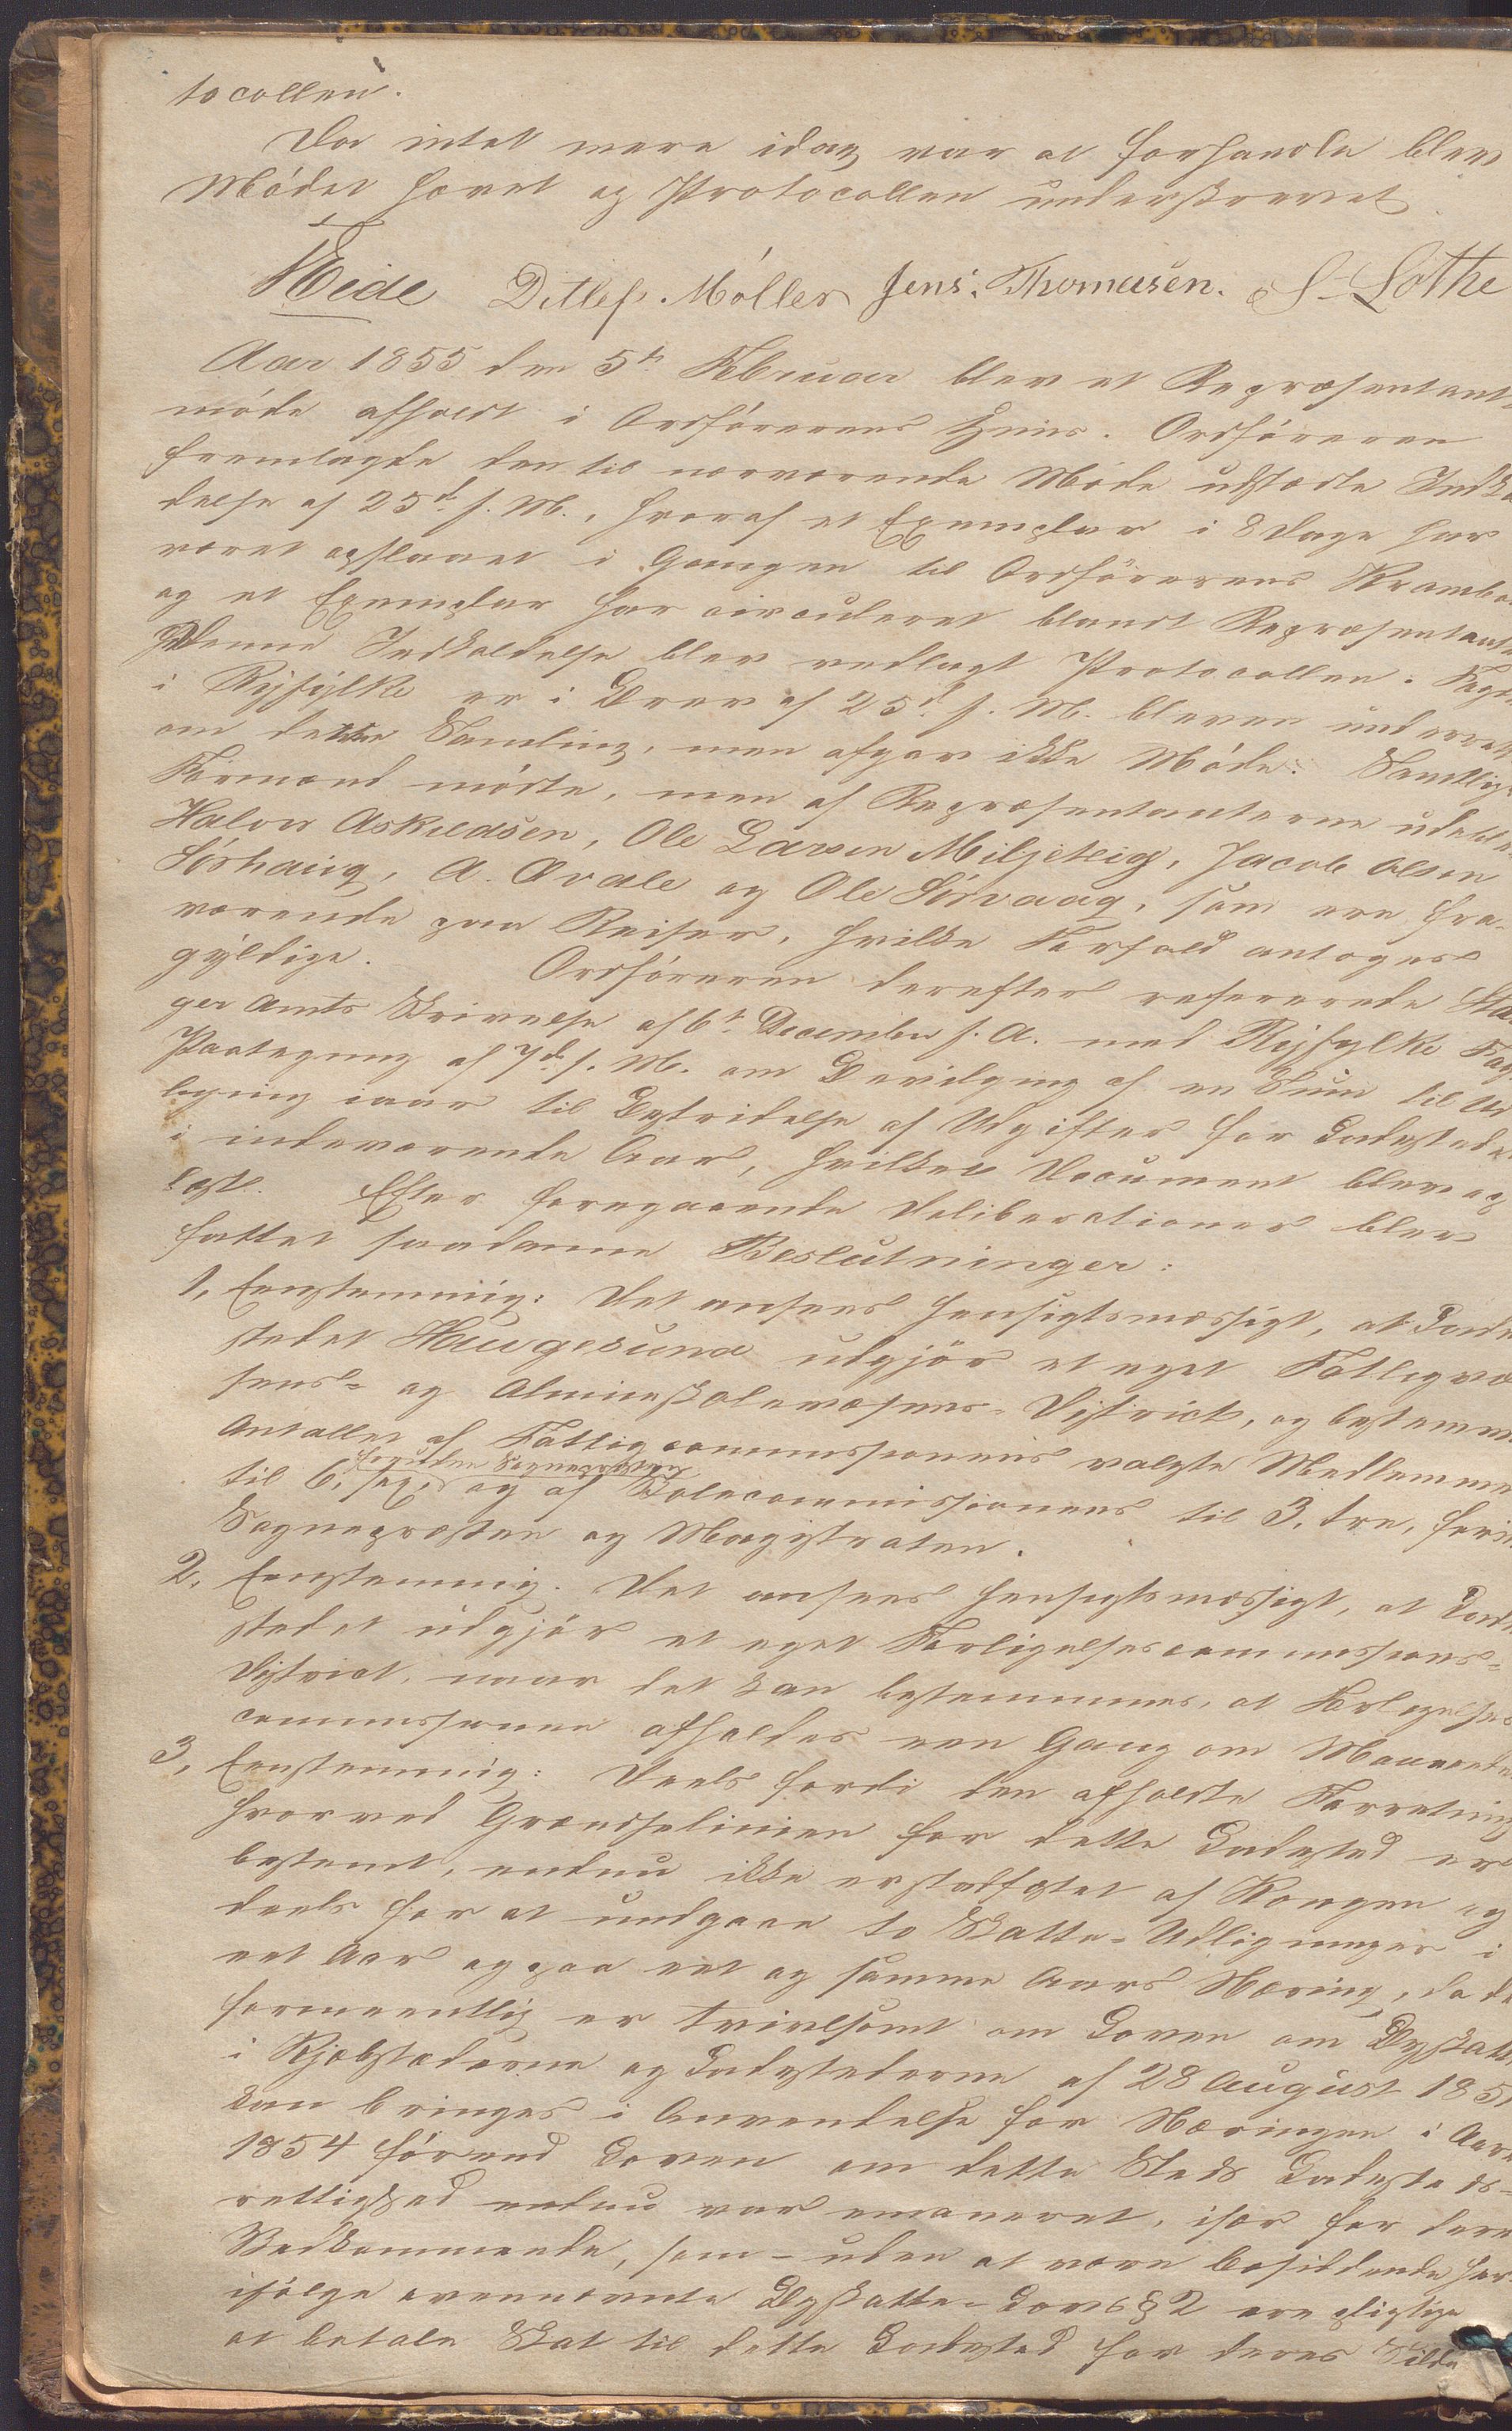 tocollen.
Da intet mere idag var at forhandle blev
Mödet hævet og Protocollen underskrevet.
Eide Ditlef Möller Jens Thomasen. S. Lothe
Aar 1855 den 5te Februar blev et Repræsentant
möde afholdt i Ordförerens Huus. Ordföreren
fremlagde den til nærværende Möde udstædte Indkal
delse af 25de f. M., hvoraf et Exemplar i 8 Dage har
været opslaaet i Gangen til Ordförerens Krambo
og et Exemplar har circuleret blandt Repræsentant
Denne Indkaldelse blev vedlagt Protocollen. Fogd
i Ryfylke er i Brev af 25de f. M. bleven underret
om dette Samling, men afgav ikke Möde. Samtlige
Formænd mödte, men af Repræsentanterne udeble
Halvor Askildsen, Ole Larsen Miljeteig, Jacob Olsen
Sörhaug, A. Qvale og Ole Sörvaag, som ere fra-
værende paa Reiser, hvilke Forfald antoges
gyldige. Ordföreren derefter refererede Sta
ger Amts Skrivelse af 6te December f. A. med Ryfylke Fog
Paategning af 7de f. M. om Bevilgning af en Sum til Ud
ligning iaar til Bestridelse af Udgifter for Ladestedet
i indeværende Aar, hvilket Document blev op
læst. Efter foregaaende Deliberationer blev
fattet saadanne Beslutninger:
1, Eenstemmig: Det ansees hensigtsmæssigt, at Lade
stedet Haugesund udgjör et eget Fattigvæ
sens- og Almueskolevæsens-District, og bestemm
Antallet af Fattigcommissionens valgte Medlemme
foruden Sognepræsten
til 6, sex, og af Skolecommissionens til 3, tre, foru
Sognepræsten og Magistraten.
2, Eenstemmig. Det ansees hensigtsmæssigt, at Lade
stedet udgjör et eget Forligelsescommissions-
District, naar det kan bestemmes, at Forligelses
commissionen afholdes een Gang om Maaneden
3, Eenstemmig: Deels fordi den afholdte Forretning
hvorved Grændselinien for dette Ladested er
bestemt, endnu ikke er stadfæstet af Kongen og
deels for at undgaae to Skatte-Udligninger i
eet Aar og paa eet og samme Aars Næring, da de
formeentlig er tvivlsomt om Loven om Byskatt
i Kjöbstæderne og Ladestederne af 28 August 185
kan bringes i Anvendelse for Næringen i Aare
1854 förend Loven om dette Steds Ladesteds-
rettighed endnu var emaneret, især for dere
Vedkommende, som - uden at være bosiddende her
ifölge ovennævnte Byskatte-Lovs § 2 ere pligtige
at betale Skat til dette Ladested for deres Silde